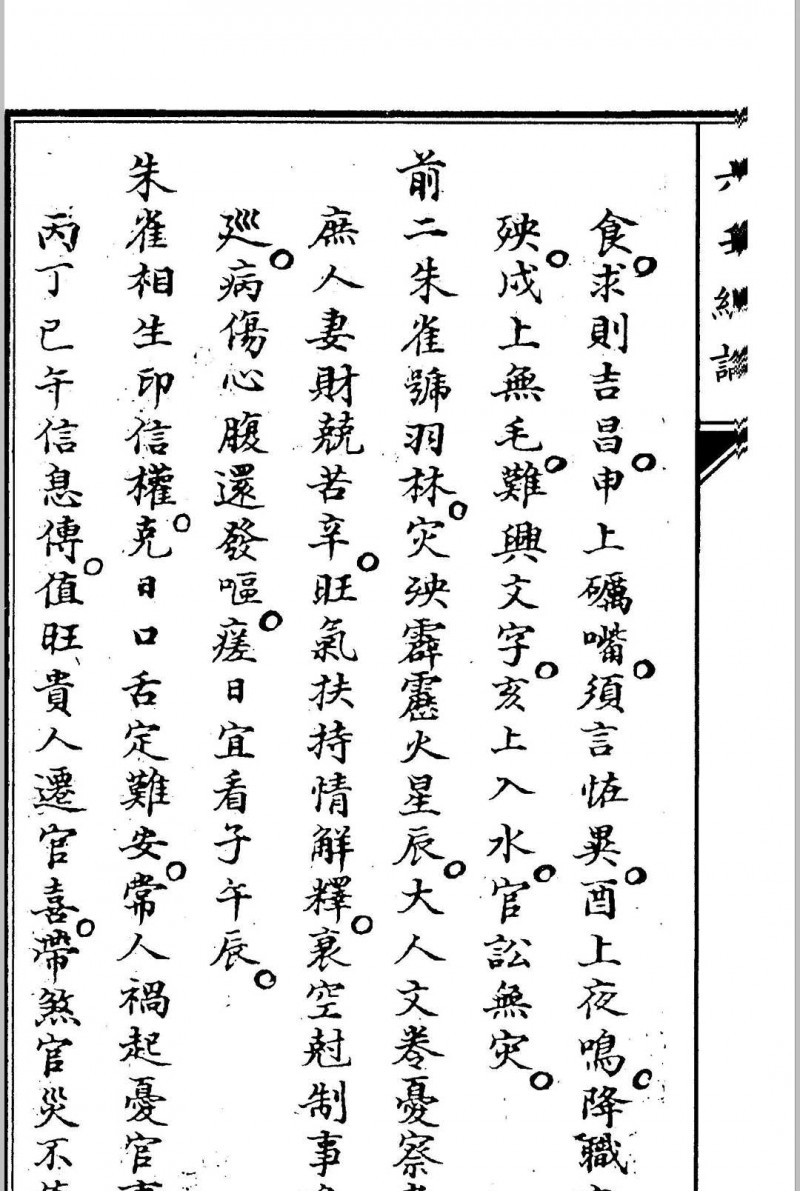 六壬經論
食求則吉昌申上礪嘴須言恠異酉上夜鳴降職
殃戍上無毛難興文字亥上入水官訟無灾
前二朱雀號羽林灾殃霹靂火星辰大人文卷憂察
庶人妻財兢苦辛旺氣扶持情解釋衰空尅制事
廵病傷心腹還發嘔瘥日宜看子午辰
朱雀相生印信權克日口舌定難安常人禍起憂官事
丙丁巳午信息傳值旺貴人遷官喜帶煞官災不